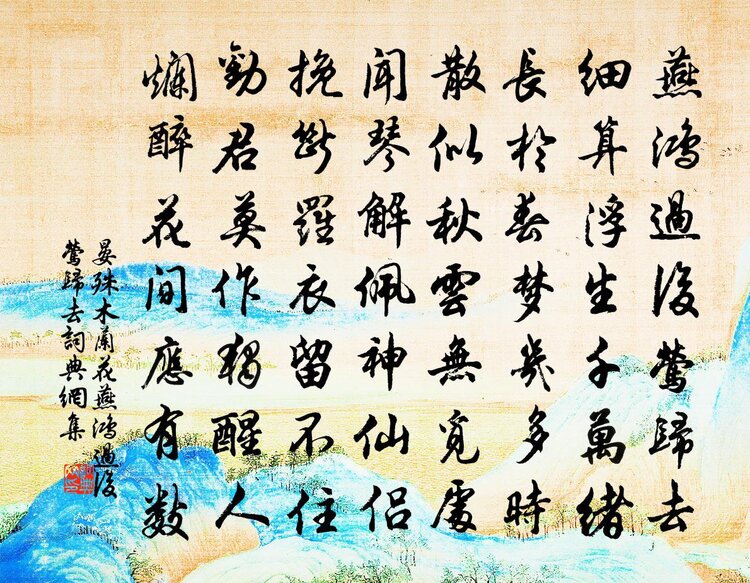 燕鴻過後鶯歸去
細算浮生千萬緒
長於春夢幾多時
散似秋雲無覓處
聞琴解佩神仙侶
挽斷羅衣留不住
勸君莫作獨醒人
爛醉花間應有數
晏殊木蘭花燕鴻過後
鶯歸去詞典網集